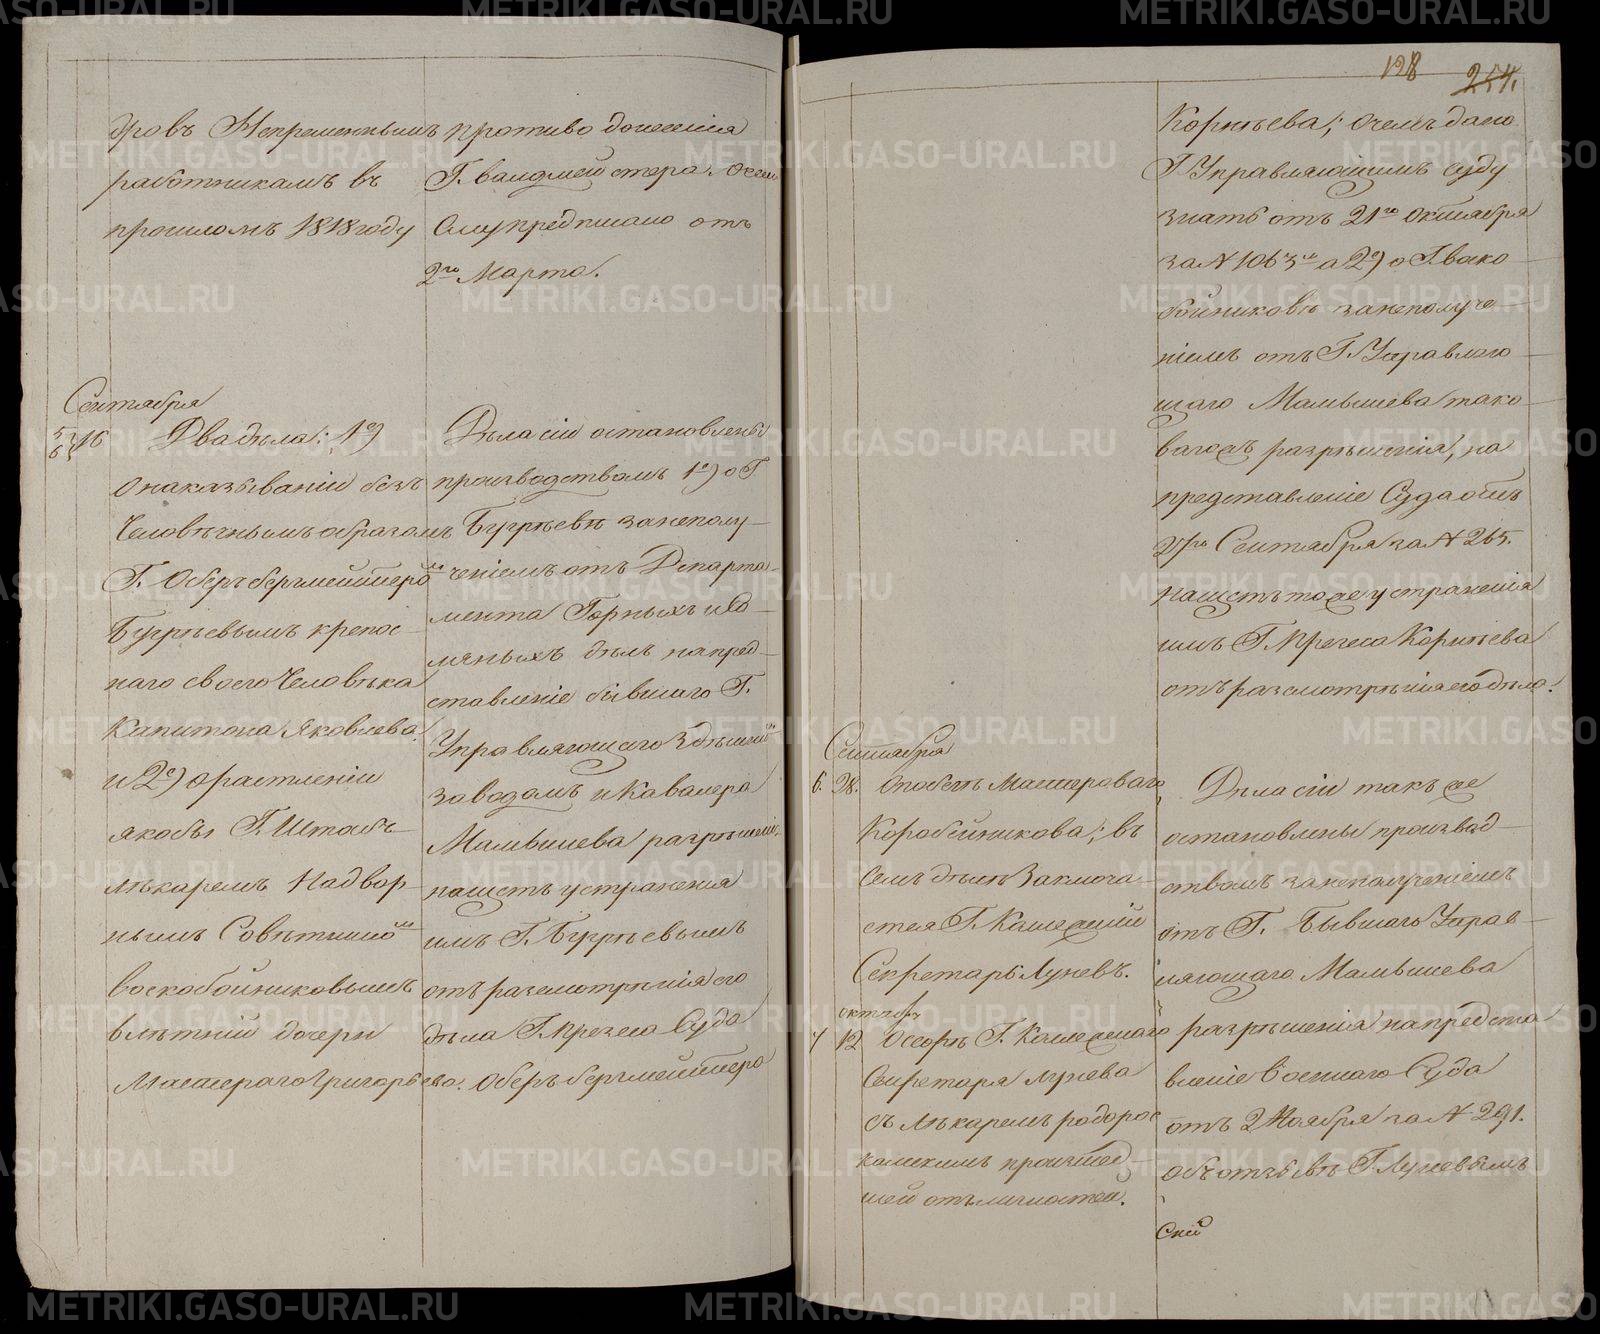 дровъ Непременнымъ
работникамъ въ
прошломъ 1818 году
противо донесенія
Г. валдмейстера. Очем
Ему предписано отъ
2го Марта.
Сентября
5 16 Два дѣла: 1е)
6
о наказываніи без
человѣчнымъ образомъ
Г. Оберъ бергмейстеромъ
Бугрѣевымъ крепос-
наго своего Человѣка
Капитона Яковлева.
и 2е) о растленіи
якобы Г. Штабъ
лѣкаремъ Надвор-
нымъ Совѣтникомъ
Воскобойниковымъ
влѣтній дочери
Мастероваго Григорьева.
Дѣла сіи остановлены
производствомъ 1е) о Г
Бугрѣевѣ за неполу-
ченіемъ отъ Департа-
мента Горныхъ и Со-
ляныхъ дѣлъ на пред-
ставленіе бывшаго Г.
Управляющаго Здѣшнимъ
заводомъ и Кавалера
Мамышева разрѣшенія,
на щетъ устраненія
имъ Г. Бугрѣевымъ
отъ разсмотрѣнія его
дѣла Г. Презеса Суда
Оберъ бергмейстера
128 254.
Корнѣева; о чемъ дано
Г. Управляющимъ суду
знать отъ 21го Октября
за N 1063м а 2е) о Г. воско-
бойниковѣ за неполуче-
ніемъ отъ Г. Управляю-
щаго Мамышева тако-
ваго жъ разрѣшенія, на
представленіе Суда отъ
27го Сентября за N 265.
на щетъ то же устраненія
имъ Г. Презеса Корнѣева
отъ разсмотрѣнія его дѣла.
Сентября
6. 28. О побегѣ Мастероваго
Коробейникова; въ
семъ дѣлѣ Заключа-
ется Г. Коллежскій
Секретарь Луневъ.
октября
7 12 О ссорѣ Г. Коллежскаго
Секретаря Лунева
съ лѣкаремъ
произшед-
шей отъ личностей.
Дѣла сіи такъ же
остановлены производ-
ствомъ за неполученіемъ
отъ Г. Бывшаго Управ-
ляющаго Мамышева
разрѣшенія на предста
вленіе Военнаго Суда
отъ 2 Ноября за N 291.
объ отзывѣ Г. Луневымъ